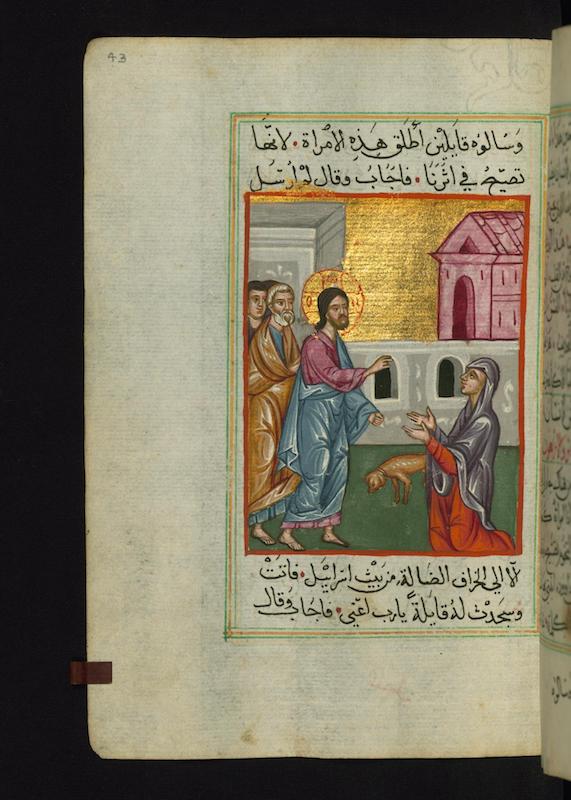 43
وَسَالوُه قَايِليْن أَطْلق هَذِهِ الامْرَاة • لانَّهَا
تصيّحُ في اثْرنَا • فاجَابُ وقال لمْ ارْسَل
لّا الي الخراف الضالة من بَيْت اسْرَائيْل • فاتتْ
وسَجدتْ لهُ قايلةً يارب اعنّي • فاجابَ وَقال